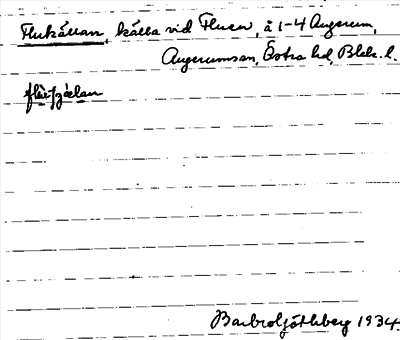 Flukällan, källa vid Flucen, å 1-4 Augerum,
Augerumssn, Östra hd, Blek. l.
Barbro Göthberg 1934